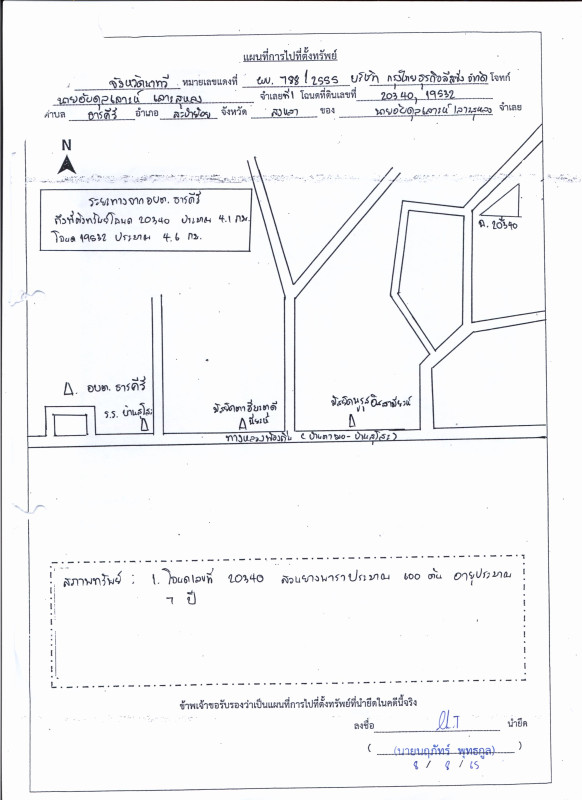 แผนที่การไปที่ตั้งทรัพย์
จังหวัดนาทวี หมายเลขแดงที่ ผบ. 788/2555 บริษัท กรุงไทยธุรกิจลีสซิ่ง จำกัด โจทก์
นายอับดุลเลาะห์ จำเลยที่1 โฉนดที่ดินเลขที่ 20340, 19532
ตำบล ธารคีรี อำเภอ สะบ้าย้อย จังหวัด สงขลา ของ นายอับดุลเลาะห์ จำเลย
N
ระยะทางจาก อบต. ธารคีรี
ถึงที่ตั้งทรัพย์โฉนด 20340 ประมาณ 4.1 กม.
โฉนด 19532 ประมาณ 4.6 กม.
ฉ. 20340
อบต. ธารคีรี
ร.ร. บ้าน
มัสยิด
มัสยิดนูรุลอิสลามียะห์
ทางหลวงท้องถิ่น
สภาพทรัพย์ : 1. โฉนดเลขที่ 20340 สวนยางพาราประมาณ 600 ต้น อายุประมาณ
7 ปี
ข้าพเจ้าขอรับรองว่าเป็นแผนที่การไปที่ตั้งทรัพย์ที่นำยึดในคดีนี้จริง
ลงชื่อ นำยึด
(นายนฤภัทร์ พุทธกูล)
8 / 8 / 65